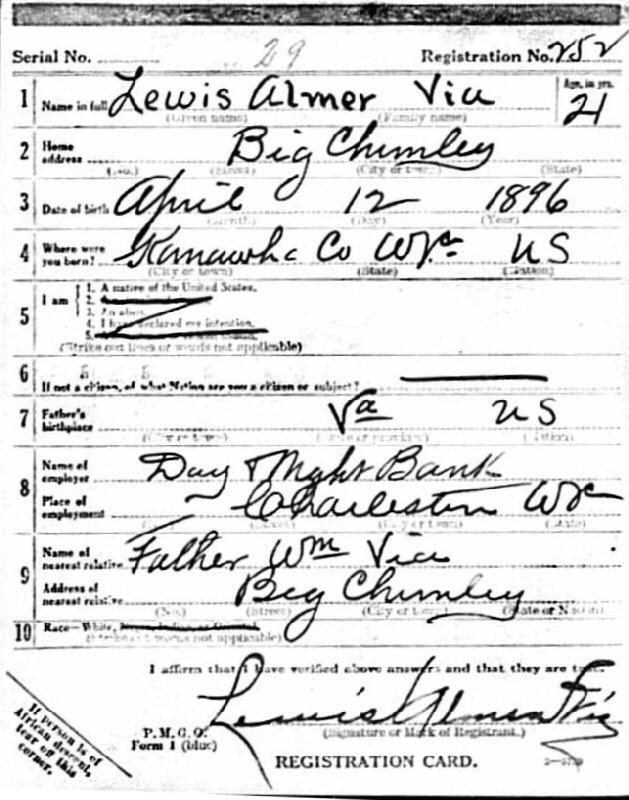 Serial No. 29 Registration No. 252
1 Name in full Lewis Almer Via Age, in yrs. 21
(Given name) (Family name)
2 Home address Big Chimley
(No.) (Street) (City or town) (State)
3 Date of birth April 12 1896
(Month) (Day) (Year)
4 Where were you born? Kanawha Co W Va US
(City or town) (State) (Nation)
5 I am
1. A native of the United States.
2.
3. An alien.
4. I have declared my intention.
5.
(Strike out lines or words not applicable)
6
If not a citizen, of what Nation are you a citizen or subject?
7 Father's birthplace Va US
(City or town) (State or province) (Nation)
8 Name of employer Day & Night Bank
Place of employment Charleston W Va
(Street) (City or town) (State)
9 Name of nearest relative Father Wm Via
Address of nearest relative Big Chimley
(No.) (Street) (City or town) (State or Nation)
10 Race—White, Negro, Indian, or Oriental
(Strike out words not applicable)
I affirm that I have verified above answers and that they are true.
Lewis Almer Via
P. M. G. O. (Signature or Mark of Registrant.)
Form 1 (blue)
REGISTRATION CARD.
If person is of
African descent,
tear off this
corner.